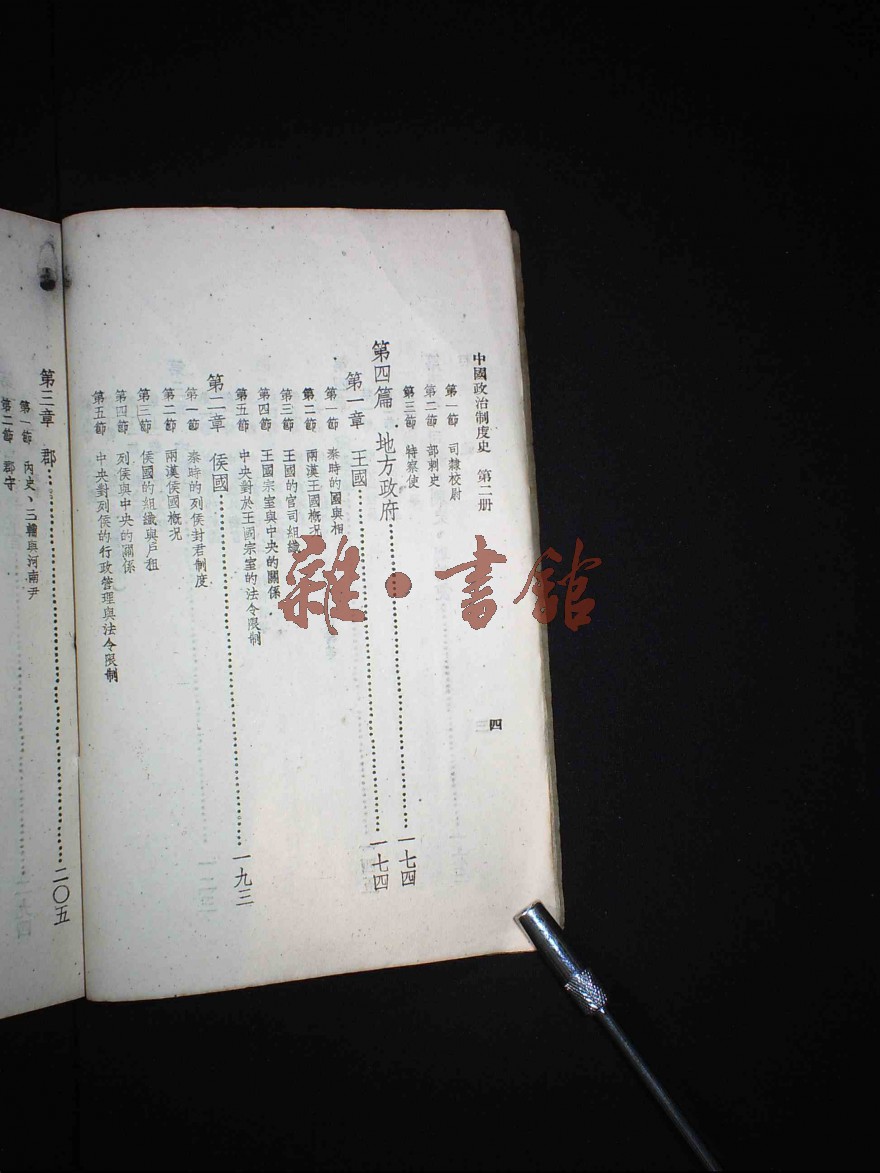 中國政治制度史 第二册
四
第一節 司隸校尉
第二節 部刺史
第三節 特察使
第四篇 地方政府……一七四
第一章 王國……一七四
第一節 秦時的國與相
第二節 兩漢王國概況
第三節 王國的官司組織
第四節 王國宗室與中央的關係
第五節 中央對於王國宗室的法令限制
第二章 侯國……一九三
第一節 秦時的列侯封君制度
第二節 兩漢侯國概況
第三節 侯國的組織與戶租
第四節 列侯與中央的關係
第五節 中央對列侯的行政管理與法令限制
第三章 郡……二〇五
第一節 內史、三輔與河南尹
第二節 郡守
雜·書館